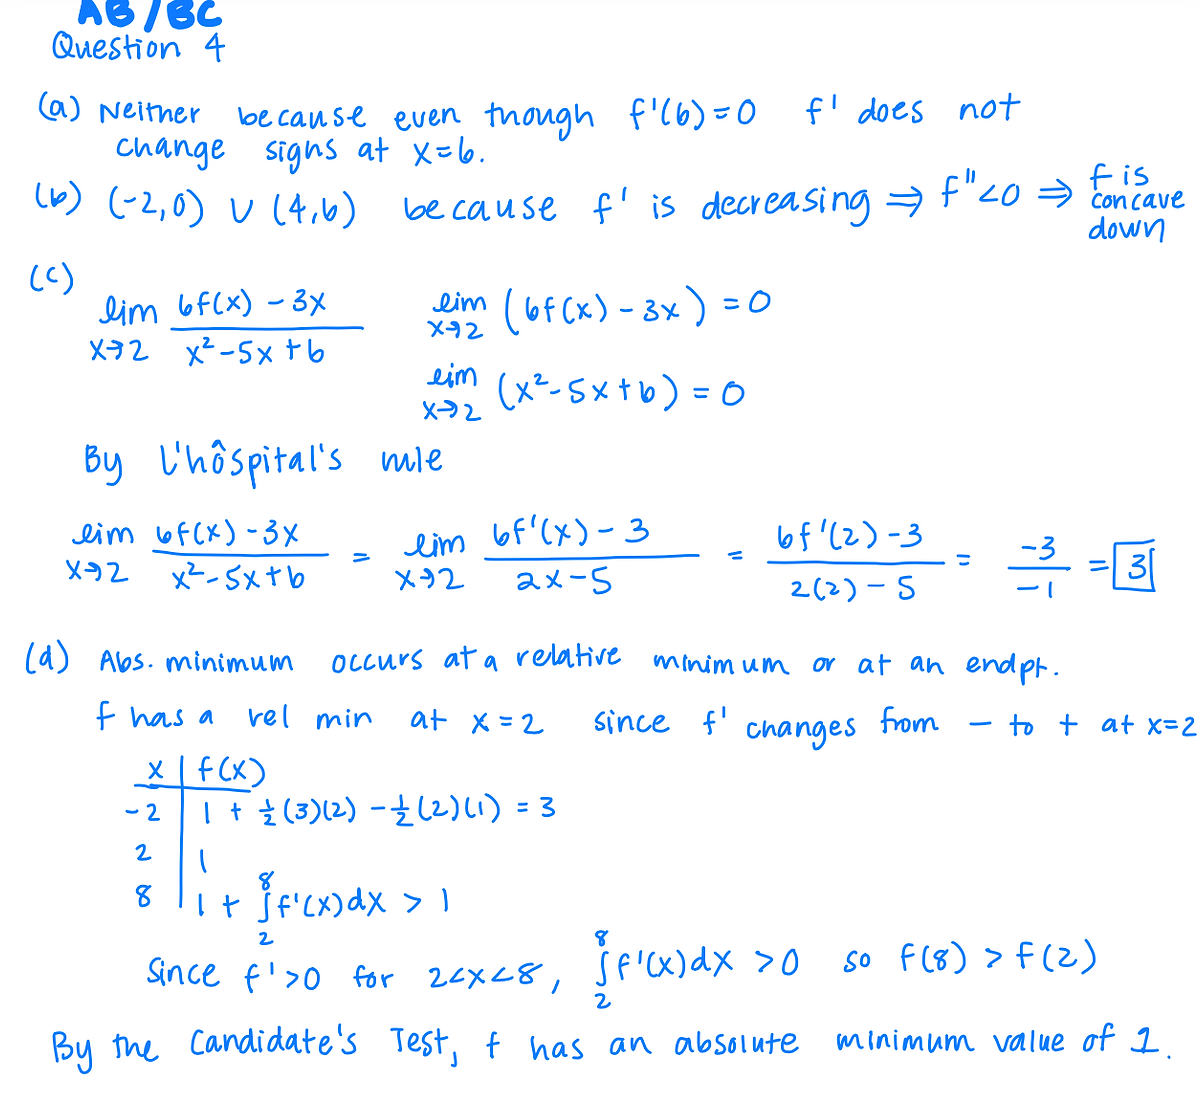 AB/BC
Question 4
(a) Neither because even though f'(6)=0 f' does not
change signs at x=6.
(b) (-2,0) ∪ (4,6) because f' is decreasing ⇒ f''<0 ⇒ f is concave down
(c)
lim x→2 (6f(x) - 3x)/(x²-5x+6) lim x→2 (6f(x) - 3x) = 0
lim x→2 (x²-5x+6) = 0
By L'hôspital's rule
lim x→2 (6f(x)-3x)/(x²-5x+6) = lim x→2 (6f'(x)-3)/(2x-5) = (6f'(2)-3)/(2(2)-5) = -3/-1 = 3
(d) Abs. minimum occurs at a relative minimum or at an endpt.
f has a rel min at x=2 since f' changes from - to + at x=2
x | f(x)
-2 | 1 + ½(3)(2) - ½(2)(1) = 3
2 | 1
8 | 1 + ∫₂⁸ f'(x)dx > 1
Since f'>0 for 2<x<8, ∫₂⁸ f'(x)dx >0 so f(8) > f(2)
By the Candidate's Test, f has an absolute minimum value of 1.